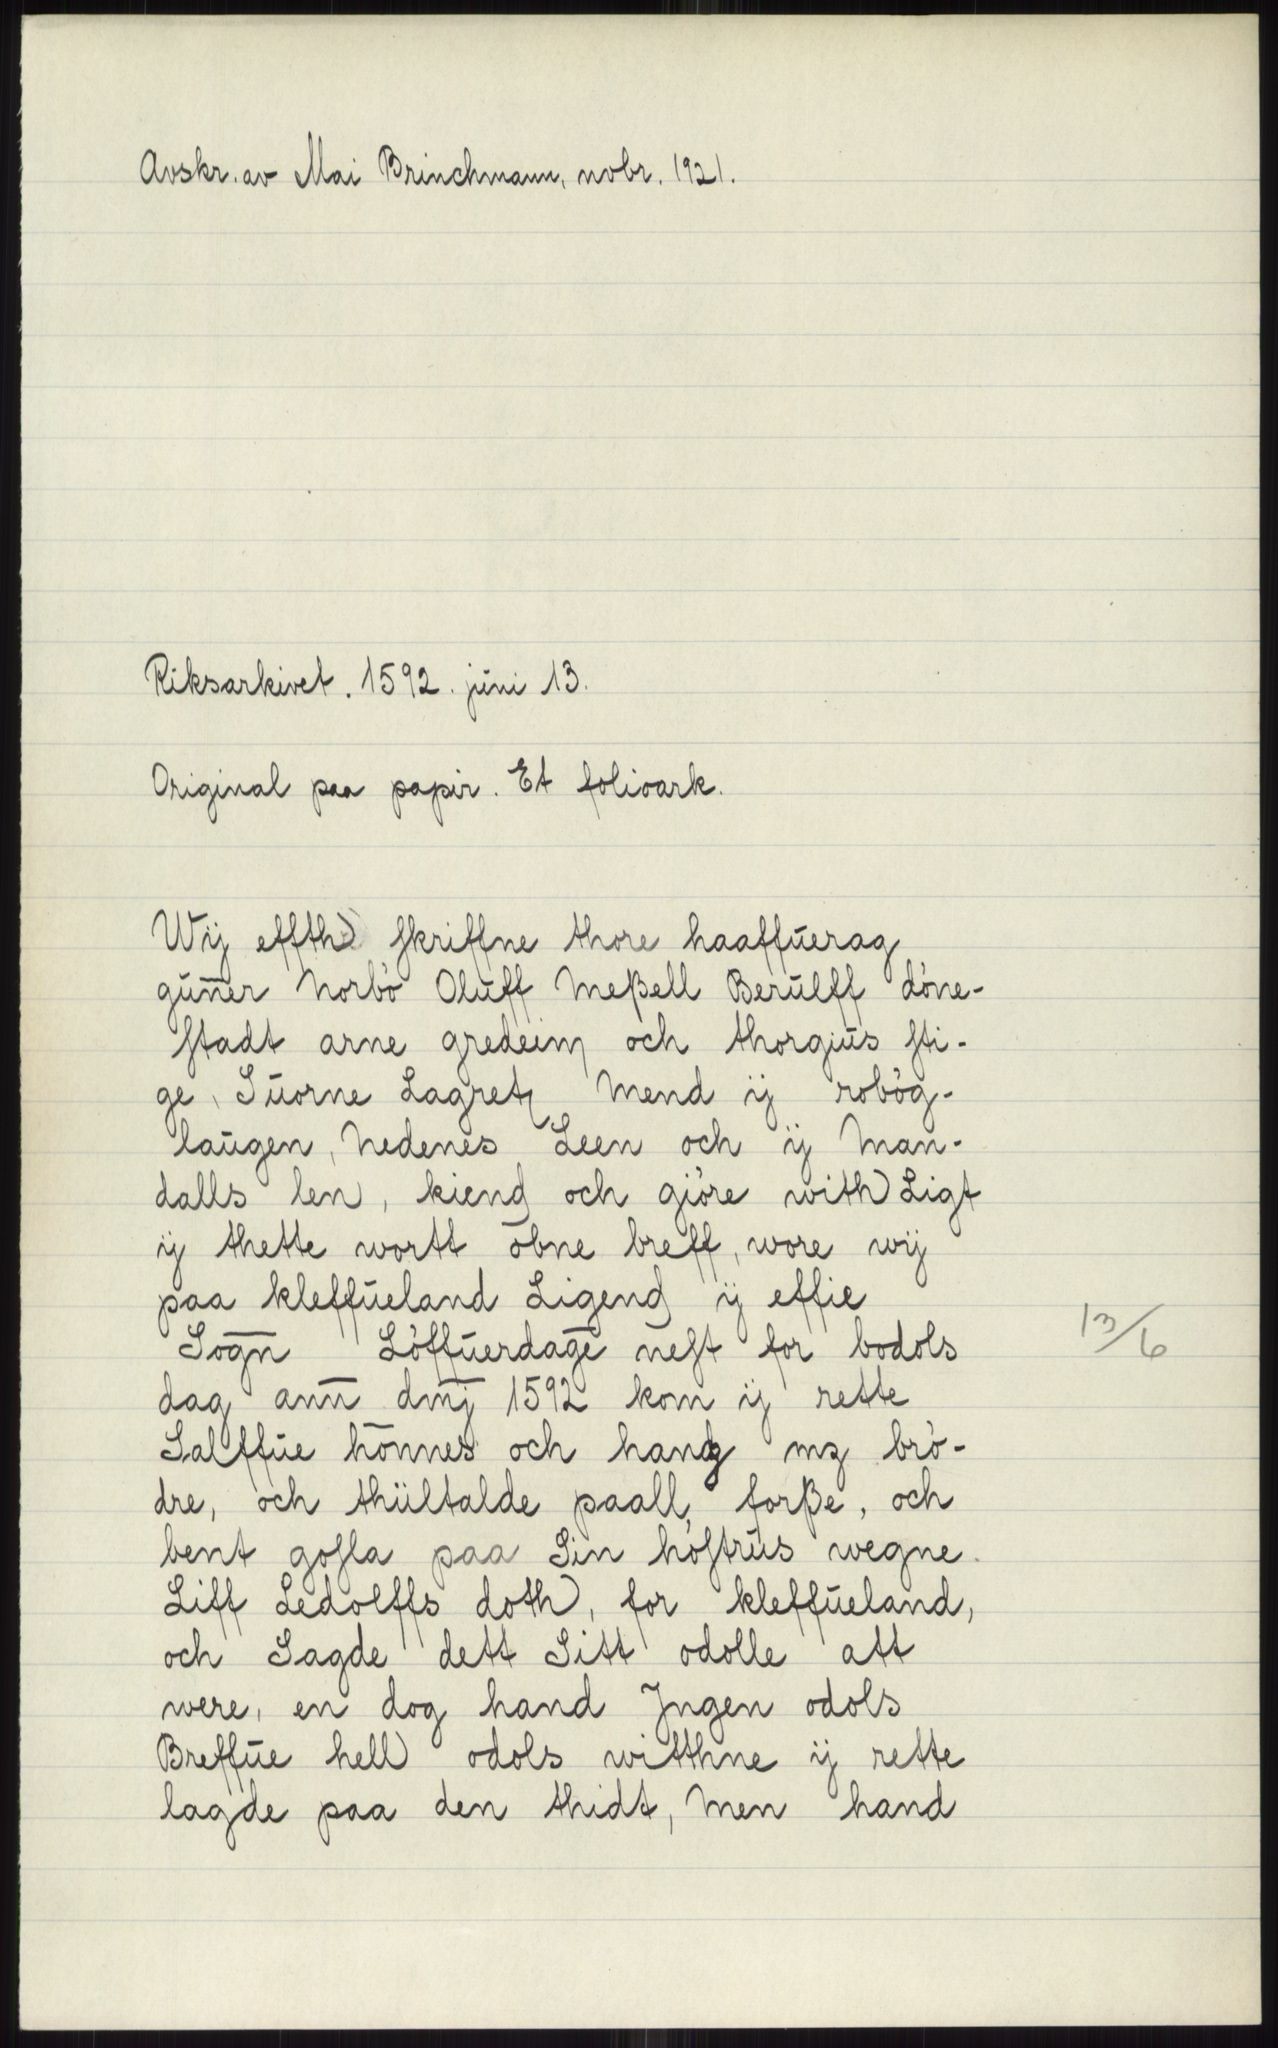 Avskr. av Mai Brinchmann, nvbr. 1921.
Riksarkivet. 1592. juni 13.
Original paa papir. Et folioark.
Wij effth skriffne thore haaffūerag
gūn̄er Norbö Olūff Meβell Berūlff döne-
stadt arne gredeim och thorgiūs sti-
ge, Sūorne Lagretz Mend ij robög-
laūgen, Nedenes Leen och ij Man-
dalls len, kiend och giöre with Ligt
ij thette wortt ōbne breff, wore wij
paa kleffūeland Ligend ij effie
Sogn̄ Löffūerdagē nest for bodols
dag an̄n̄ dm̄j 1592 kom ij rette
Salffūe hōnnes och hans mz brö-
dre, och thūltalde paall, forβe, och
bent gosla paa Sin höstrūs wegne
Liff Ledolffs doth, for kleffūeland,
och Sagde dett Sitt odolle att
were, en dog hand Jngen odols
Breffūe hell odols witthne ij rette
lagde paa den thidt, Men hand
13/6